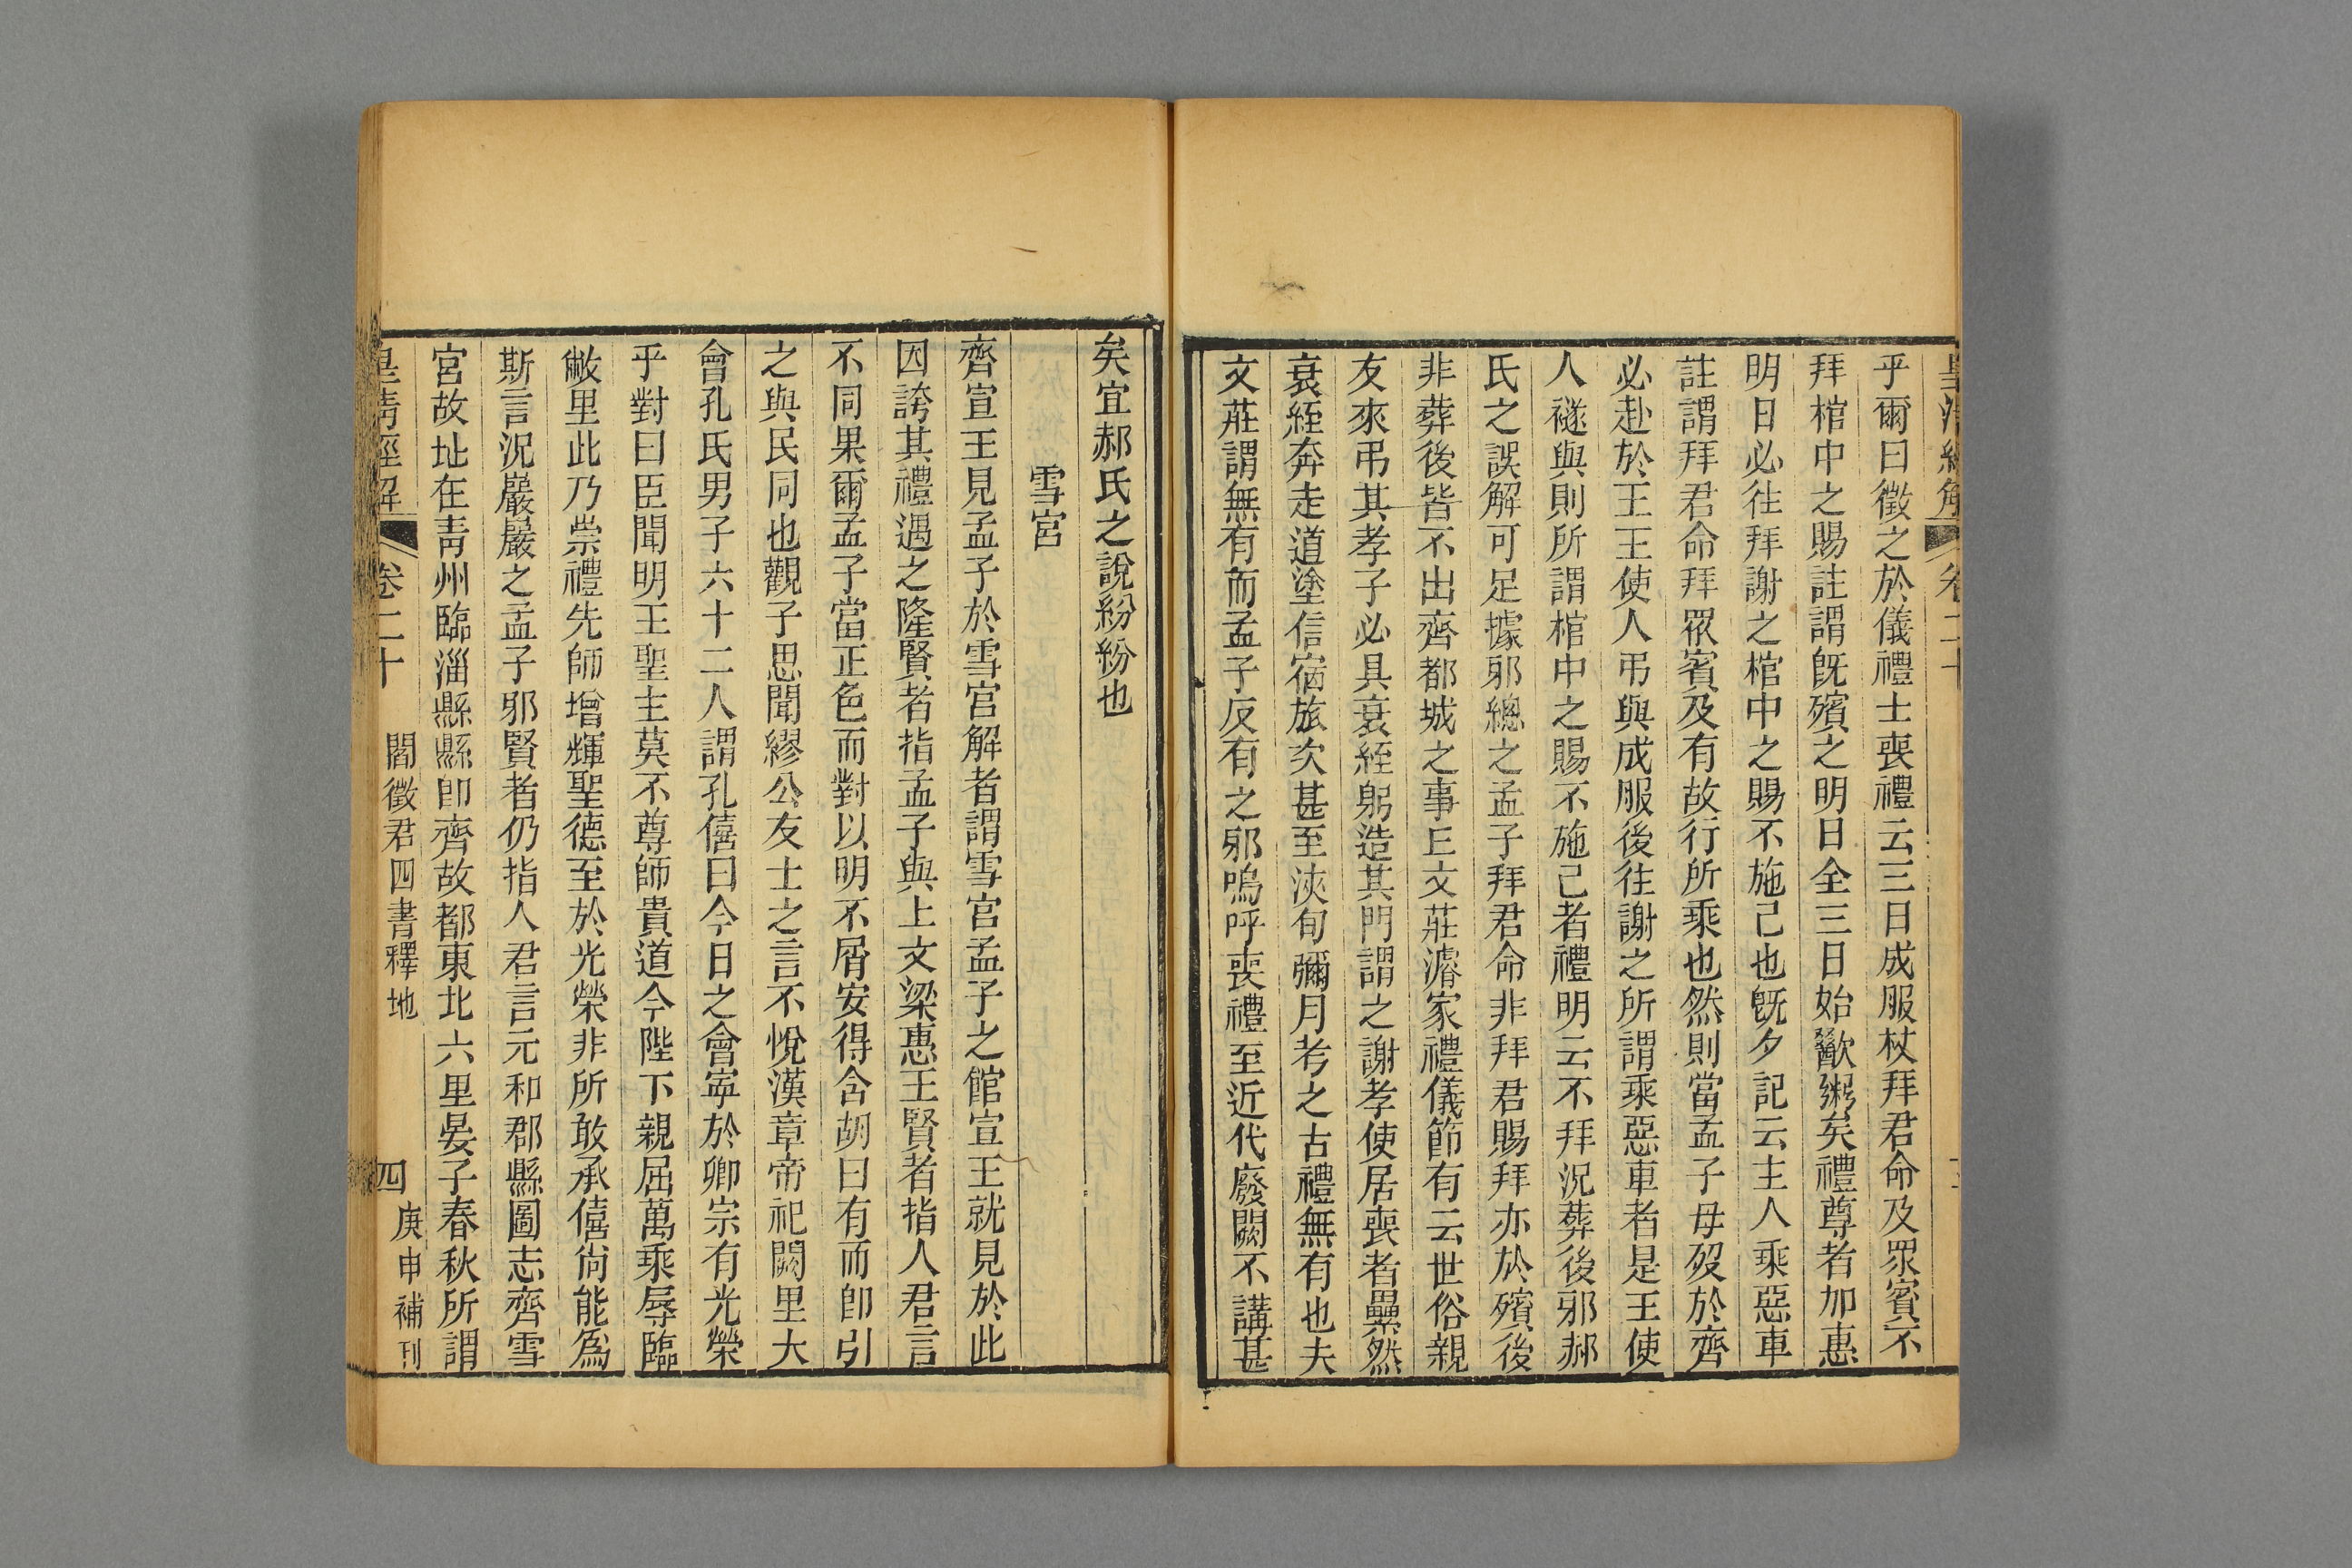 皇清經解
卷二十
乎爾曰徵之於儀禮士喪禮云三日成服杖拜君命及眾賓不
拜棺中之賜註謂旣殯之明日全三日始歠粥矣禮尊者加惠
明日必往拜謝之棺中之賜不施己也旣夕記云主人乘惡車
註謂拜君命拜眾賓及有故行所乘也然則當孟子母歿於齊
必赴於王王使人弔與成服後往謝之所謂乘惡車者是王使
人襚與則所謂棺中之賜不施己者禮明云不拜況葬後邪郝
氏之誤解可足據邪總之孟子拜君命非拜君賜拜亦於殯後
非葬後皆不出齊都城之事丘文莊濬家禮儀節有云世俗親
友來弔其孝子必具衰絰躬造其門謂之謝孝使居喪者纍然
衰絰奔走道塗信宿旅次甚至浹旬彌月考之古禮無有也夫
文莊謂無有而孟子反有之邪嗚呼喪禮至近代廢闕不講甚
矣宜郝氏之說紛紛也
雪宮
齊宣王見孟子於雪宮解者謂雪宮孟子之館宣王就見於此
因誇其禮遇之隆賢者指孟子與上文梁惠王賢者指人君言
不同果爾孟子當正色而對以明不屑安得含胡曰有而卽引
之與民同也觀子思聞繆公友士之言不悅漢章帝祀闕里大
會孔氏男子六十二人謂孔僖曰今日之會寧於卿宗有光榮
乎對曰臣聞明王聖主莫不尊師貴道今陛下親屈萬乘辱臨
敝里此乃崇禮先師增輝聖德至於光榮非所敢承僖尙能爲
斯言況巖巖之孟子邪賢者仍指人君言元和郡縣圖志齊雪
宮故址在靑州臨淄縣縣卽齊故都東北六里晏子春秋所謂
皇清經解
卷二十
閻徵君四書釋地
四
庚申補刊